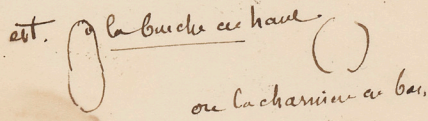 est. la bouche en haut
ou la charnière en bas.